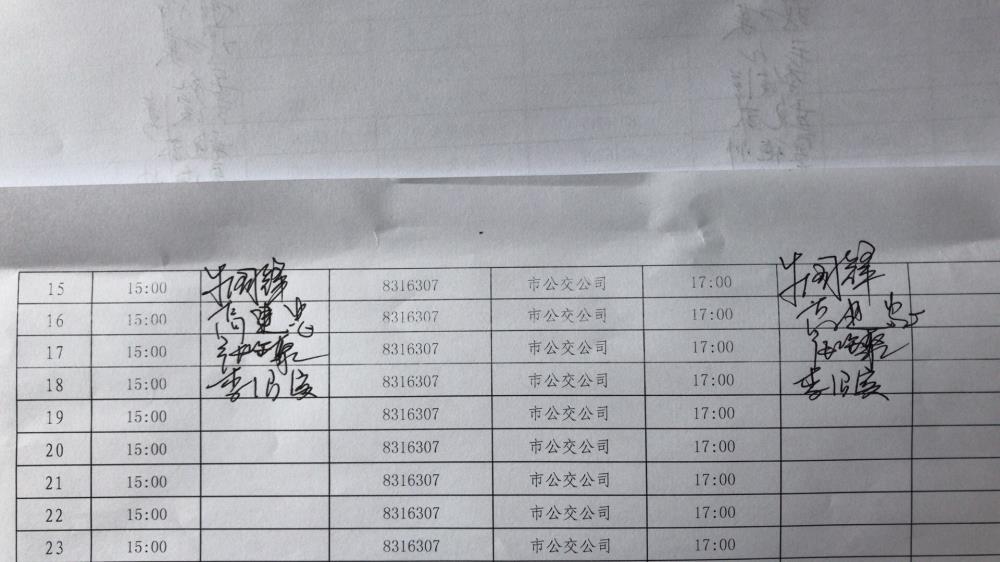 15 15:00 牛国锋 8316307 市公交公司 17:00 牛国锋
16 15:00 高 忠 8316307 市公交公司 17:00 高 忠
17 15:00 8316307 市公交公司 17:00
18 15:00 李 俊 8316307 市公交公司 17:00 李 俊
19 15:00 8316307 市公交公司 17:00
20 15:00 8316307 市公交公司 17:00
21 15:00 8316307 市公交公司 17:00
22 15:00 8316307 市公交公司 17:00
23 15:00 8316307 市公交公司 17:00